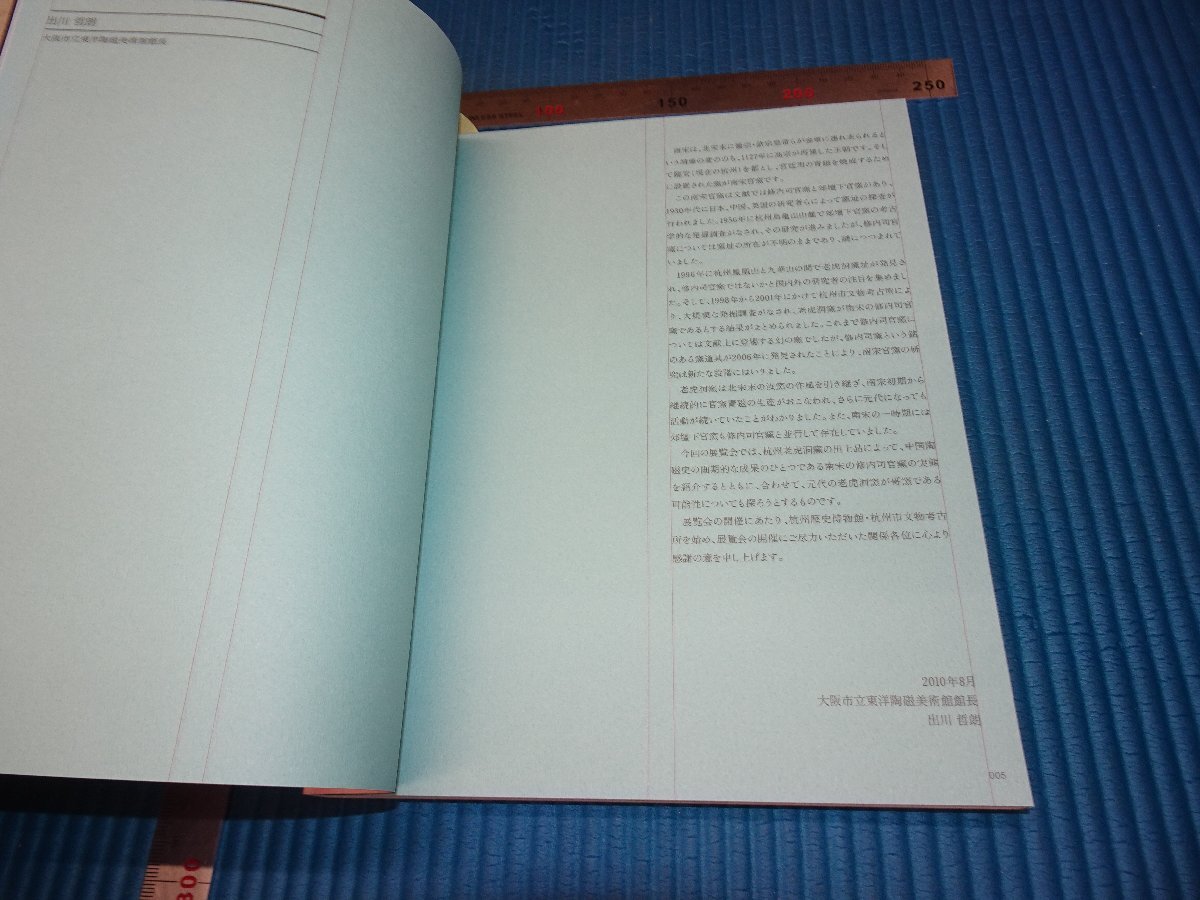 出川 哲朗
大阪市立東洋陶磁美術館館長
150
200
250
南宋は、北宋末に徽宗・欽宗皇帝らが金軍に連れ去られると
いう靖康の変ののち、1127年に高宗が再興した王朝です。そし
て臨安(現在の杭州)を都とし、宮廷用の青磁を焼成するため
に設置された窯が南宋官窯です。
この南宋官窯は文献では修内司官窯と郊壇下官窯があり、
1930年代に日本、中国、英国の研究者らによって窯址の探査が
行われました。1956年に杭州烏亀山山麓で郊壇下官窯の考古
学的な発掘調査がなされ、その研究が進みましたが、修内司官
窯については窯址の所在が不明のままであり、謎につつまれて
いました。
1996年に杭州鳳凰山と九華山の間で老虎洞窯址が発見さ
れ、修内司官窯ではないかと国内外の研究者の注目を集めまし
た。そして、1998年から2001年にかけて杭州市文物考古所によ
り、大規模な発掘調査がなされ、老虎洞窯が南宋の修内司官
窯であるとする結果がまとめられました。これまで修内司官窯に
ついては文献上に登場する幻の窯でしたが、修内司窯という銘
のある窯道具が2006年に発見されたことにより、南宋官窯の研
究は新たな段階にはいりました。
老虎洞窯は北宋末の汝窯の作風を引き継ぎ、南宋初期から
継続的に官窯青磁の生産がおこなわれ、さらに元代になっても
活動が続いていたことがわかりました。また、南宋の一時期には
郊壇下官窯も修内司官窯と並行して存在していました。
今回の展覧会では、杭州老虎洞窯の出土品によって、中国陶
磁史の画期的な成果のひとつである南宋の修内司官窯の実態
を紹介するとともに、合わせて、元代の老虎洞窯が哥窯である
可能性についても探ろうとするものです。
展覧会の開催にあたり、杭州歴史博物館・杭州市文物考古
所を始め、展覧会の開催にご尽力いただいた関係各位に心より
感謝の意を申し上げます。
2010年8月
大阪市立東洋陶磁美術館館長
出川 哲朗
005
300